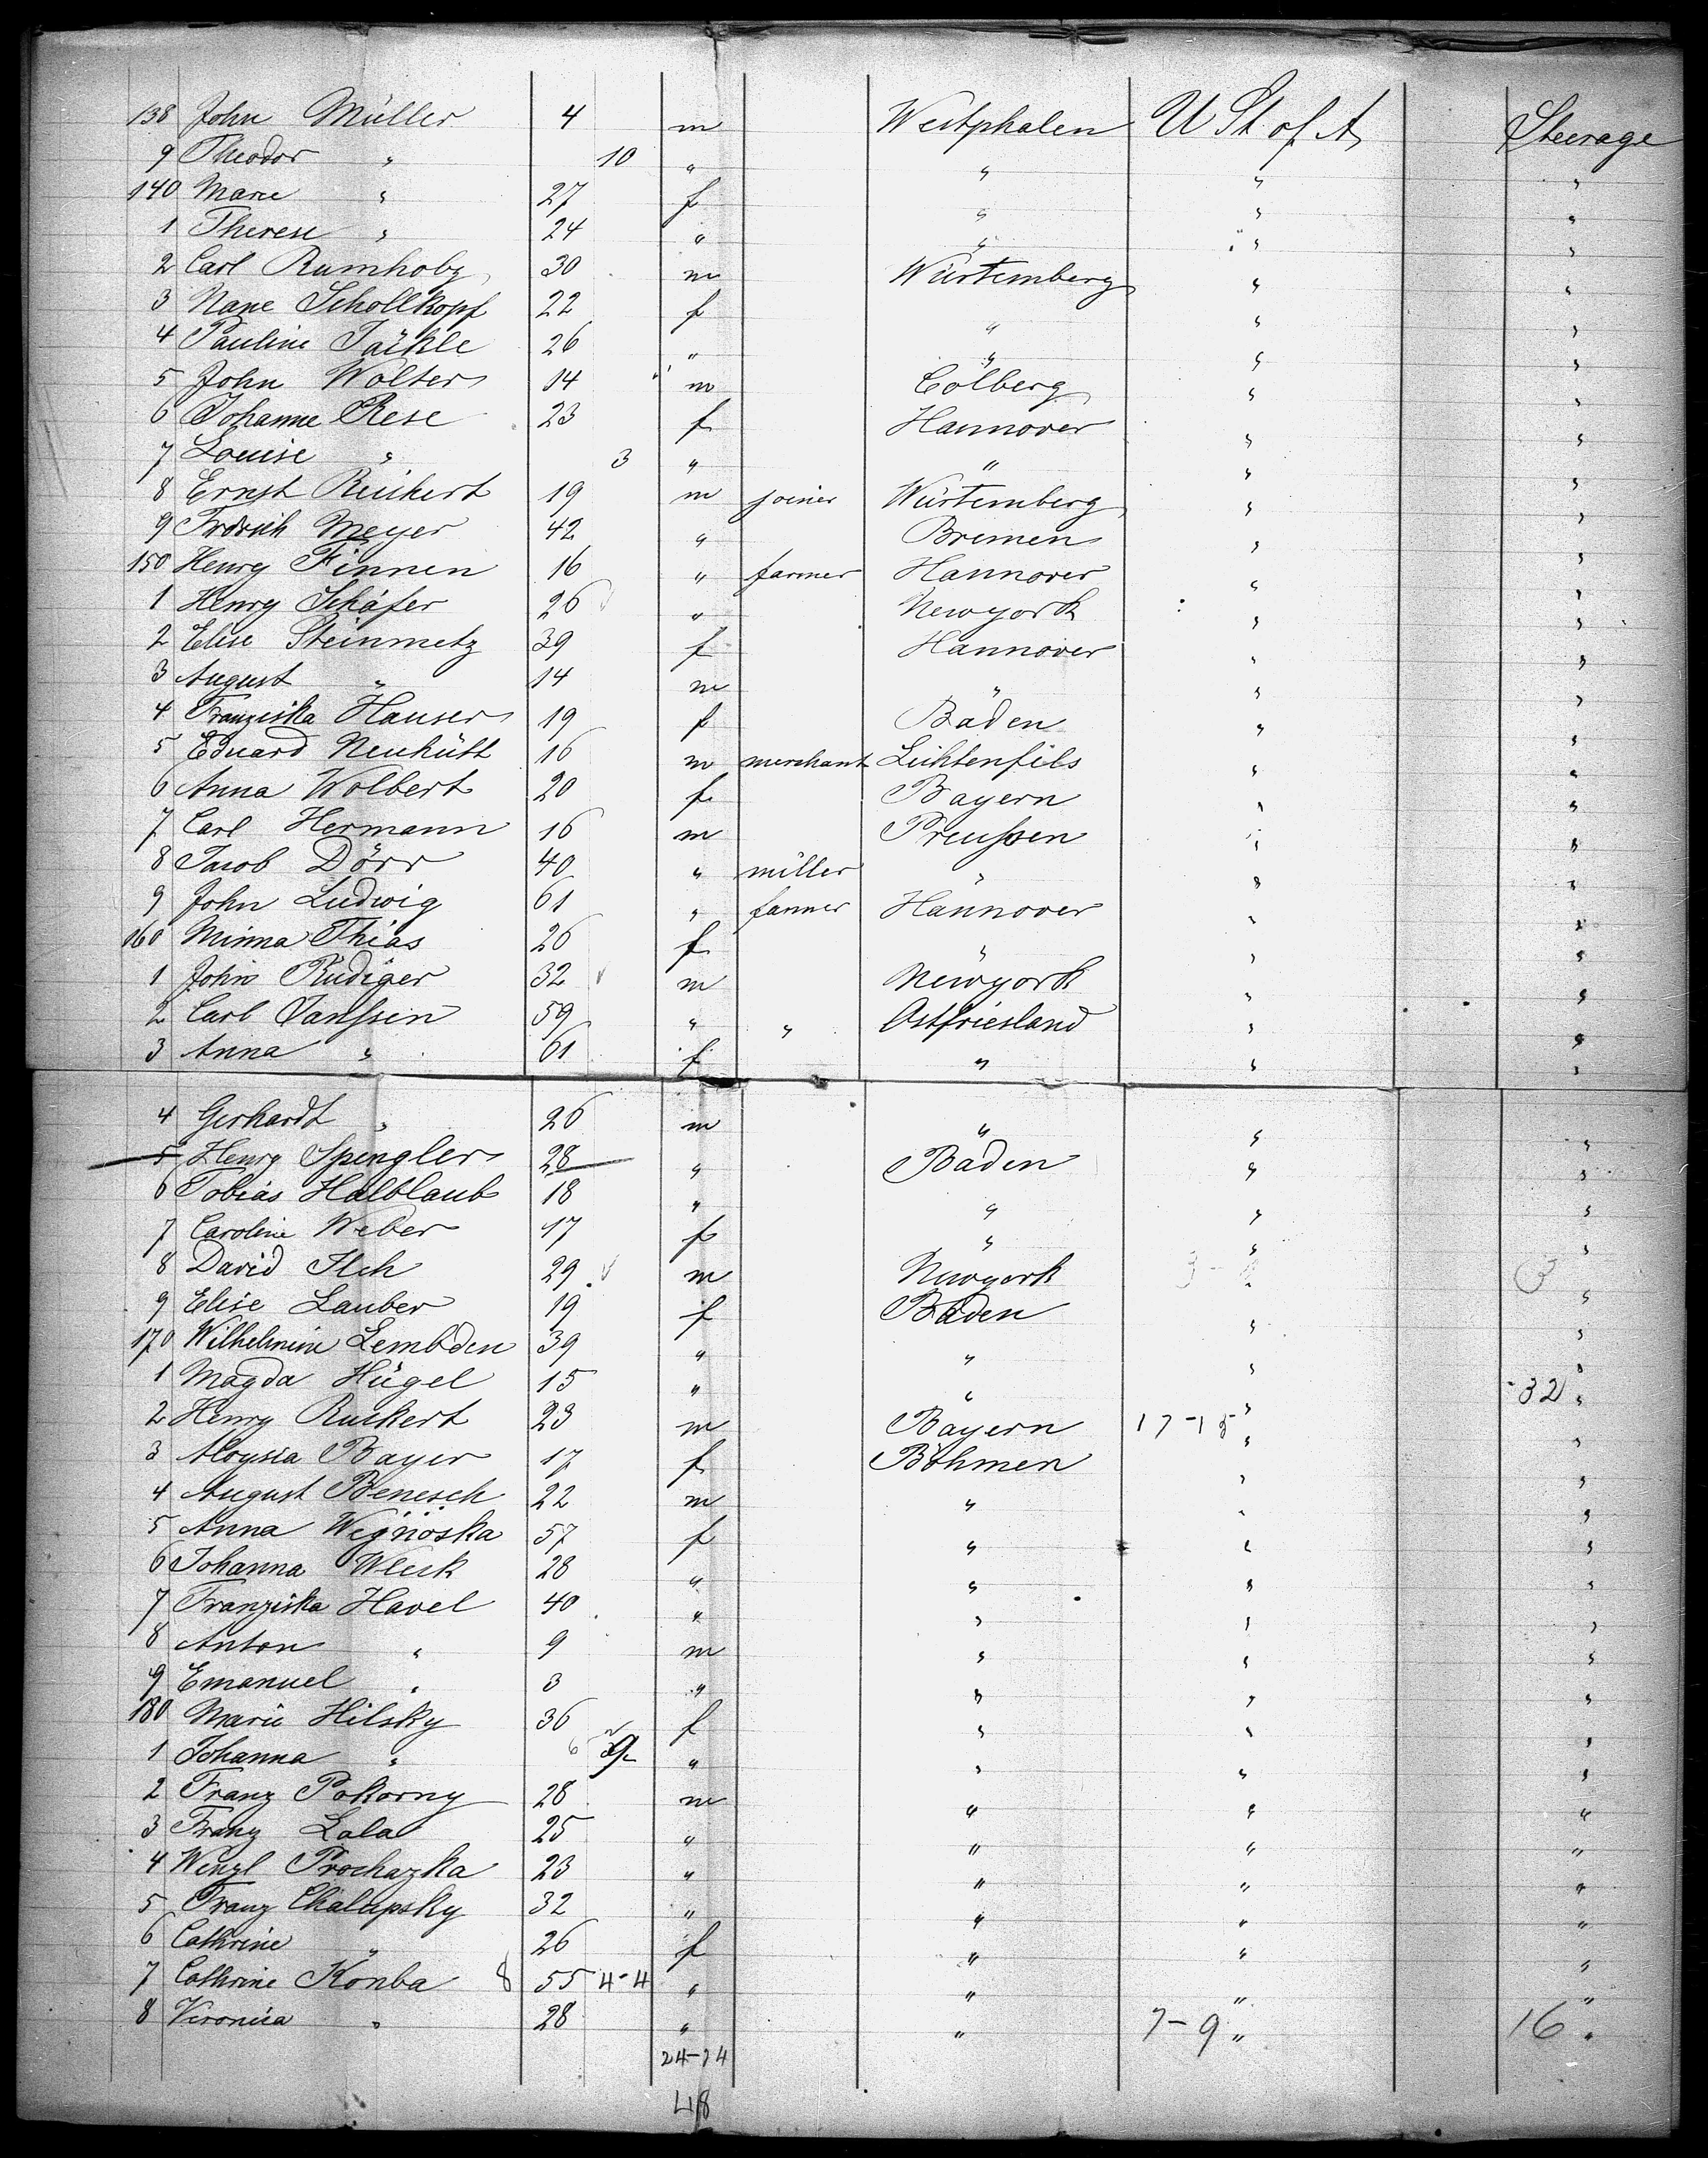 138 John Müller 4 m Westphalen U St of A Steerage
9 Theodor " 10 " " " "
140 Marie " 27 f " " "
1 Therese " 24 " " " "
2 Carl 30 m Würtemberg " "
3 Nane Schollkopf 22 f " " "
4 Pauline Jäckle 26 " " " "
5 John Wolters 14 m Colberg " "
6 Johanne Rese 23 f Hannover " "
7 Louise " 3 " " " "
8 Ernst Reichert 19 m joiner Würtemberg " "
9 Frdrich Meyer 42 " Bremen " "
150 Henry Finnen 16 " farmer Hannover " "
1 Henry Schäfer 26 " Newyork " "
2 Elise Steinmetz 39 f Hannover " "
3 August " 14 m " " "
4 Franziska Hauser 19 f Baden " "
5 Eduard 16 m merchant Lichtenfels " "
6 Anna Wolbert 20 f Bayern " "
7 Carl Hermann 16 m Preußen " "
8 Jacob Dörr 40 " miller " " "
9 John Ludwig 61 " farmer Hannover " "
160 Minna Thias 26 f " " "
1 John Rudiger 32 m Newyork " "
2 Carl Janssen 59 " " Ostfriesland " "
3 Anna " 61 f " " "
4 Gerhardt " 26 m " " "
5 Henry Spengler 28 " Baden " "
6 Tobias Halblaub 18 " " " "
7 Caroline Weber 17 f " " "
8 David Ilch 29 m Newyork " 3
9 Elise Lauber 19 f Baden " "
170 Wilhelmine Lembden 39 " " " "
1 Magda Hügel 15 " " " 32 "
2 Henry Ruckert 23 m Bayern 17-15 " "
3 Aloysia Bayer 17 f Böhmen " "
4 August Benesch 22 m " " "
5 Anna 57 f " " "
6 Johanna 28 " " " "
7 Franziska Havel 40 " " " "
8 Anton " 9 m " " "
9 Emanuel " 3 " " " "
180 Marie Hilsky 36 f " " "
1 Johanna " " " " "
2 Franz Pokorny 28 m " " "
3 Franz Lala 25 " " " "
4 Wenzl Prochazka 23 " " " "
5 Franz Chalupsky 32 " " " "
6 Cathrine " 26 f " " "
7 Cathrine Konba 8 55 4-4 " " " "
8 Veronica " 28 " " 7-9 " 16 "
24-24
48